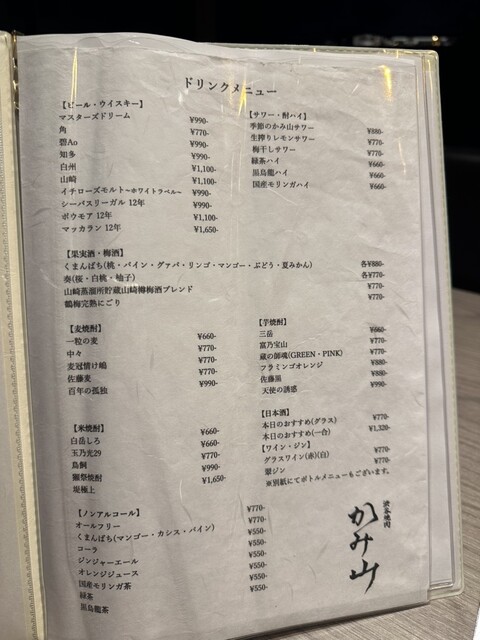 ドリンクメニュー
【ビール・ウイスキー】
マスターズドリーム ¥990-
角 ¥770-
碧Ao ¥990-
知多 ¥990-
白州 ¥1,100-
山崎 ¥1,100-
イチローズモルト~ホワイトラベル~ ¥990-
シーバスリーガル 12年 ¥990-
ボウモア 12年 ¥1,100-
マッカラン 12年 ¥1,650-
【サワー・酎ハイ】
季節のかみ山サワー ¥880-
生搾りレモンサワー ¥770-
梅干しサワー ¥770-
緑茶ハイ ¥660-
黒烏龍ハイ ¥660-
国産モリンガハイ ¥660-
【果実酒・梅酒】
くまんばち(桃・パイン・グァバ・リンゴ・マンゴー・ぶどう・夏みかん) 各¥880-
奏(桜・白桃・柚子) 各¥770-
山崎蒸溜所貯蔵山崎樽梅酒ブレンド ¥770-
鶴梅完熟にごり ¥770-
【麦焼酎】
一粒の麦 ¥660-
中々 ¥770-
麦冠情け嶋 ¥770-
佐藤麦 ¥770-
百年の孤独 ¥990-
【芋焼酎】
三岳 ¥660-
富乃宝山 ¥770-
蔵の師魂(GREEN・PINK) ¥770-
フラミンゴオレンジ ¥770-
佐藤黒 ¥880-
天使の誘惑 ¥990-
【米焼酎】
白岳しろ ¥660-
玉乃光29 ¥660-
鳥飼 ¥770-
獺祭焼酎 ¥990-
堤極上 ¥1,650-
【日本酒】
本日のおすすめ(グラス) ¥770-
本日のおすすめ(一合) ¥1,320-
【ワイン・ジン】
グラスワイン(赤)(白) ¥770-
翠ジン ¥770-
※別紙にてボトルメニューもございます。
【ノンアルコール】
オールフリー ¥770-
くまんばち(マンゴー・カシス・パイン) ¥770-
コーラ ¥550-
ジンジャーエール ¥550-
オレンジジュース ¥550-
国産モリンガ茶 ¥550-
緑茶 ¥550-
黒烏龍茶 ¥550-
渋谷焼肉
かみ山